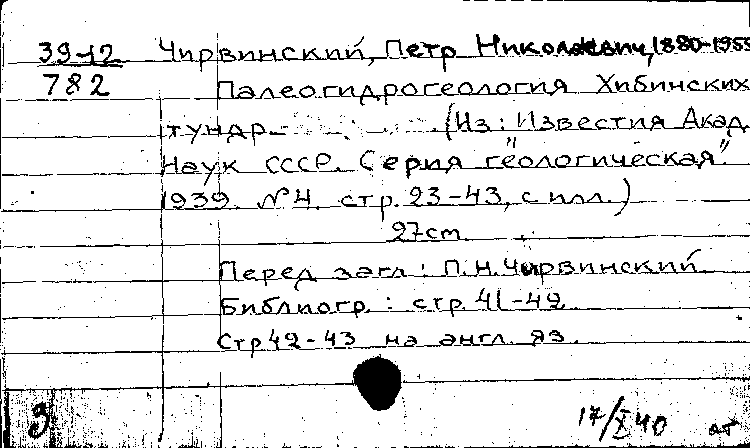 39-12 Чирвинский, Петр Николаевич, 1880-1955
782 Палеогидрогеология Хибинских
тундр. (Из: Известия Акад.
Наук СССР. Серия геологическая".
1939. №4. стр. 23-43, с илл.)
27cm
Перед загл: П.Н.Чирвинский.
Библиогр.: стр. 41-42.
Стр 42-43 на англ. яз.
17/X 40